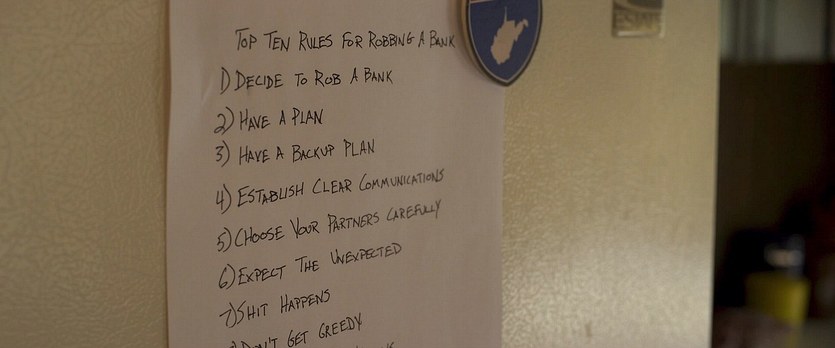 TOP TEN RULES FOR ROBBING A BANK
1) DECIDE TO ROB A BANK
2) HAVE A PLAN
3) HAVE A BACKUP PLAN
4) ESTABLISH CLEAR COMMUNICATIONS
5) CHOOSE YOUR PARTNERS CAREFULLY
6) EXPECT THE UNEXPECTED
7) SHIT HAPPENS
DON'T GET GREEDY